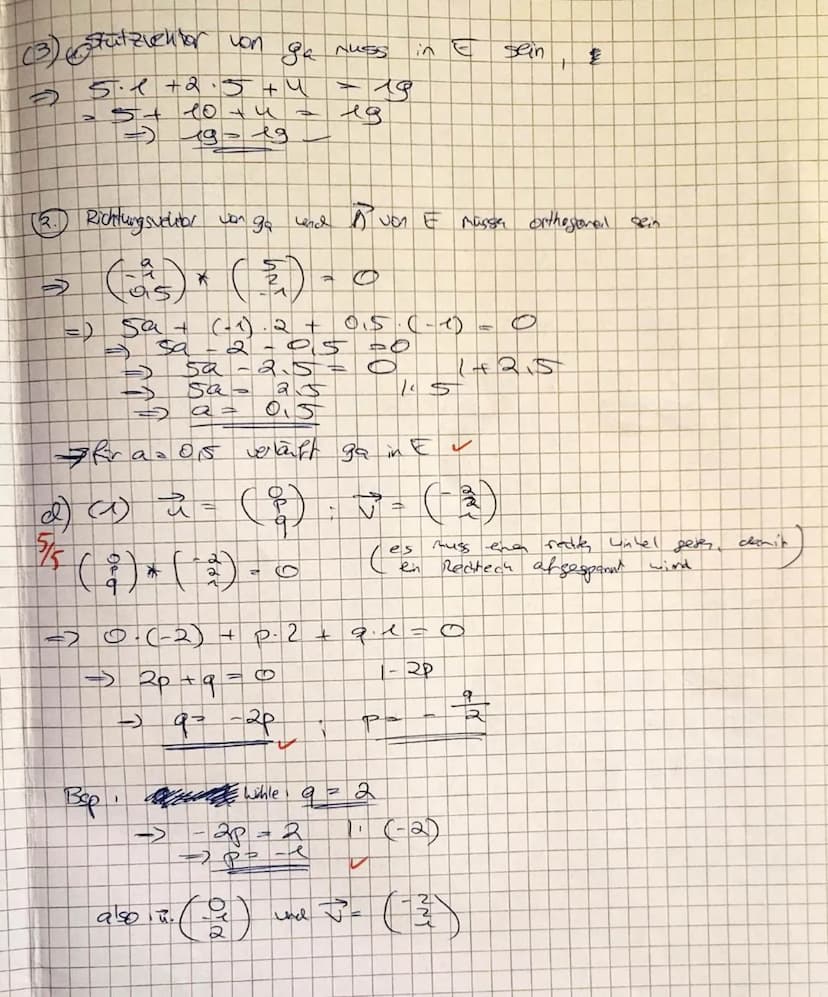 (3) 1. Stützvektor von ga muss in E sein,
=> 5·1 + 2·5 + 4 = 19
= 5 + 10 + 4 = 19
=> 19 = 19
(2.) Richtungsvektor von ga und n⃗ von E müssen orthogonal sein
=> (a -1 0,5) * (5 2 -1) = 0
=> 5a + (-1)·2 + 0,5·(-1) = 0
=> 5a - 2 - 0,5 = 0
=> 5a - 2,5 = 0 | + 2,5
=> 5a = 2,5 |: 5
=> a = 0,5
=> für a = 0,5 verläuft ga in E ✓
d) (1) u⃗ = (0 p q) ; v⃗ = (-2 2 1)
5/5
(0 p q) * (-2 2 1) = 0 (es muss einen rechten Winkel geben, damit
ein Rechteck aufgespannt wird)
=> 0·(-2) + p·2 + q·1 = 0
=> 2p + q = 0 | - 2p
=> q = -2p ✓ ; p = - q/2
Bsp. Wähle: q = 2
=> -2p = 2 |: (-2)
=> p = -1 ✓
also: u. (0 -1 2) und v⃗ = (-2 2 1)